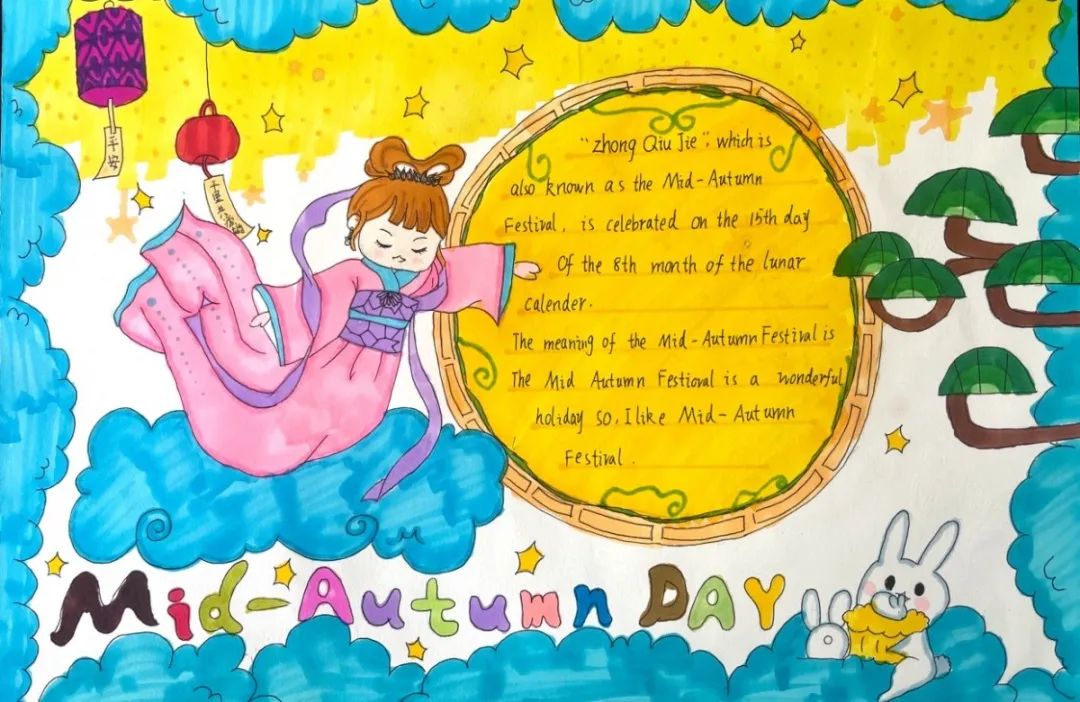 平安
"zhong Qiu Jie", which is
also known as the Mid-Autumn
Festival, is celebrated on the 15th day
Of the 8th month of the lunar
calender.
The meaning of the Mid-Autumn Festival is
The Mid Autumn Festioval is a wonderful
holiday so, I like Mid-Autumn
Festival.
Mid-Autumn DAY